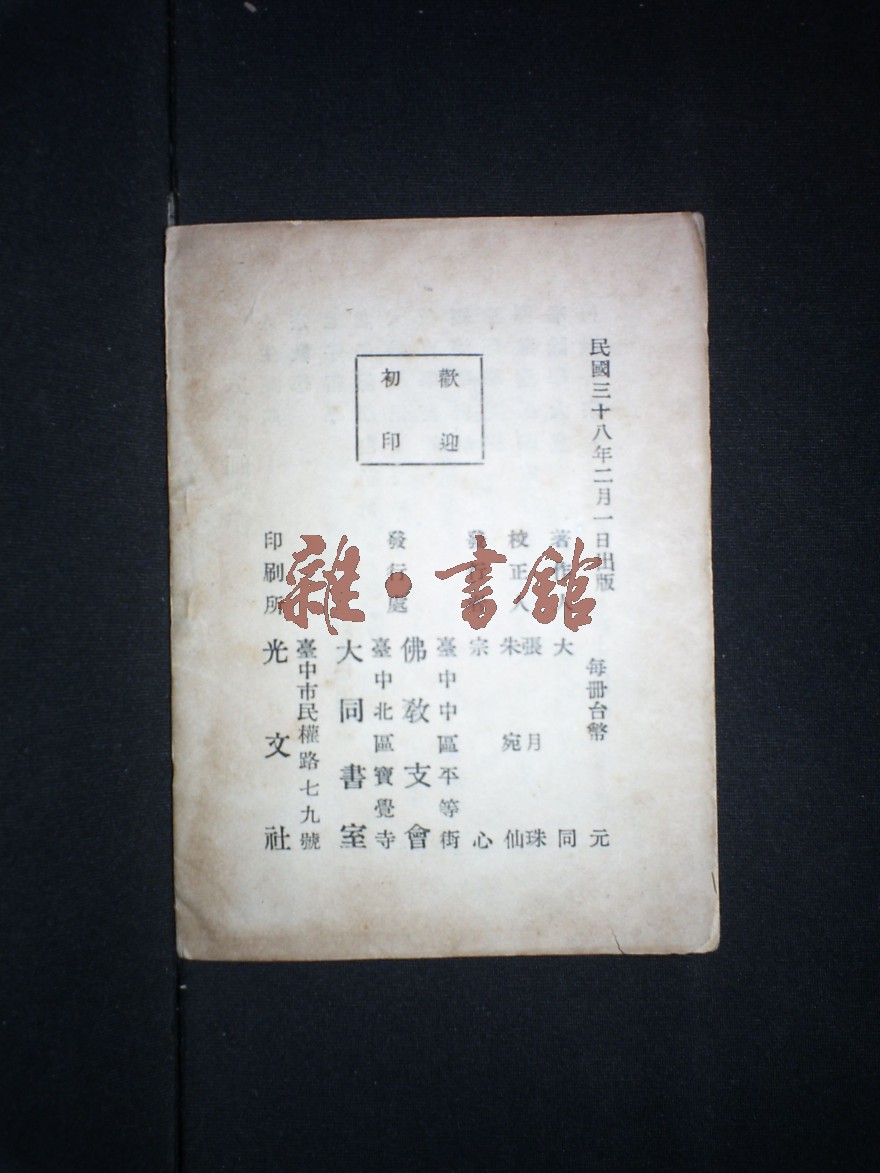 民國三十八年二月一日出版 每冊台幣 元
歡迎
初印
著作人 大同
校正人 張月珠
朱宛仙
發行人 宗心
發行處 臺中中區平等街
佛教支會
臺中北區寶覺寺
大同書室
印刷所 臺中市民權路七九號
光文社
雜•書館